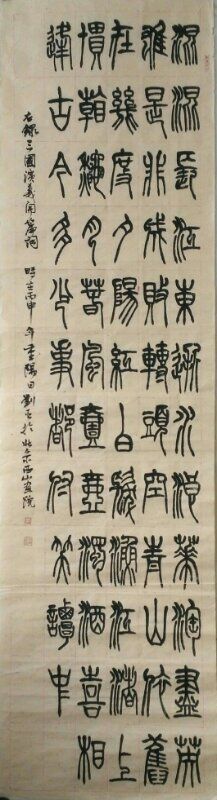 混混長江東逝水浪華淘盡英
雄是非成敗轉頭空青山依舊
在幾度夕陽紅白髮漁江渚上
慣看秋月春風壹壺濁酒喜相
逢古今多少事都付笑談中
右錄三國演義開篇詞 時在丙申年重陽日劉於北京西山畫院